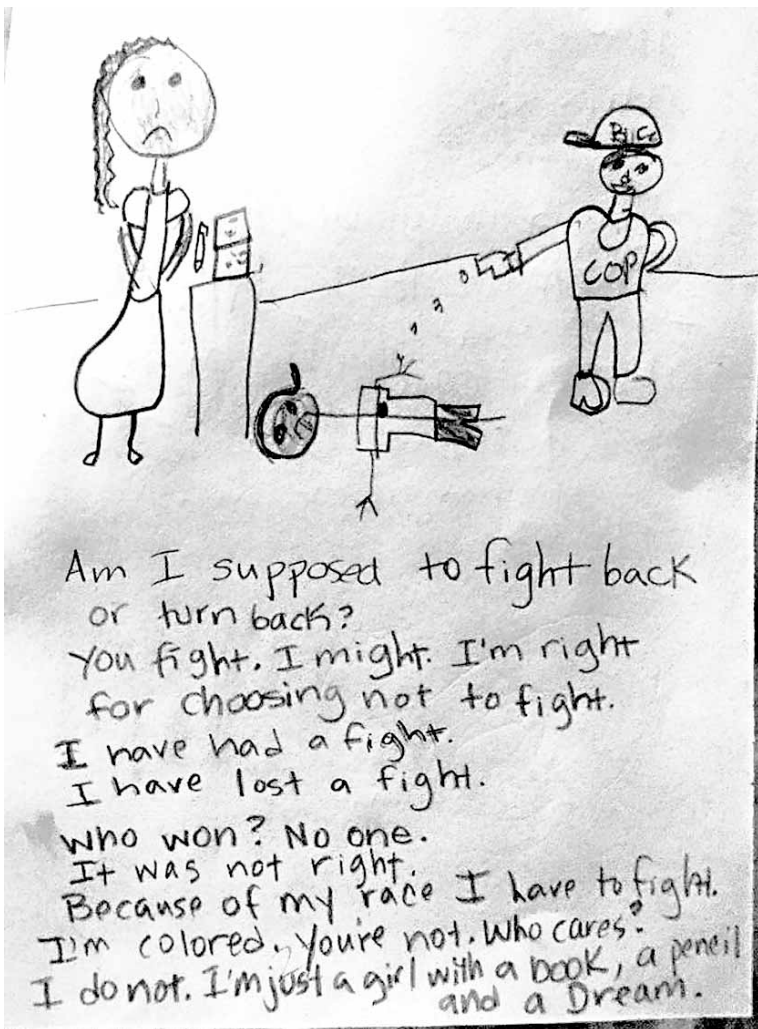 COP
Am I supposed to fight back
or turn back?
You fight. I might. I'm right
for choosing not to fight.
I have had a fight.
I have lost a fight.
Who won? No one.
It was not right.
Because of my race I have to fight.
I'm colored. You're not. Who cares?
I do not. I'm just a girl with a book, a pencil
and a Dream.